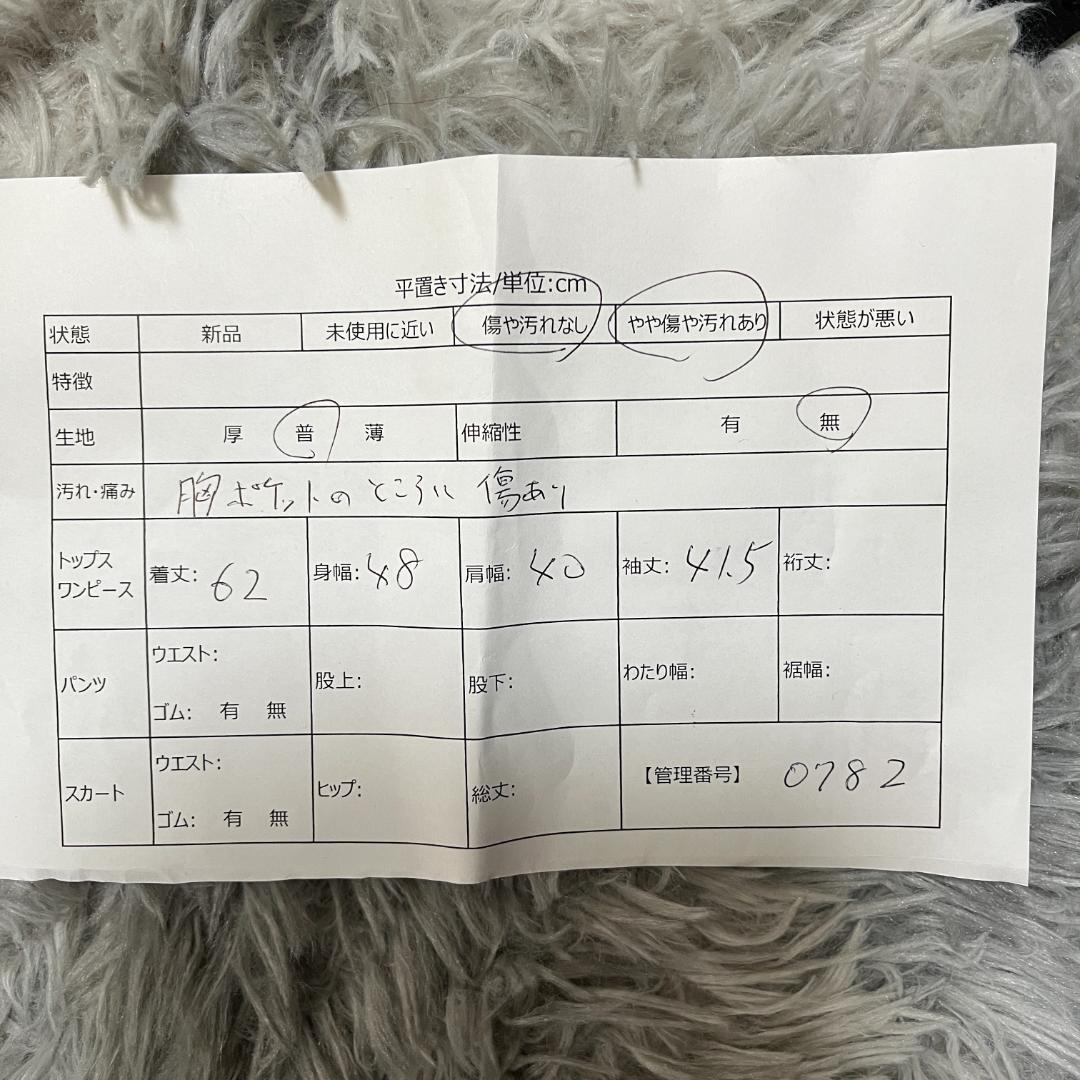 平置き寸法/単位:cm
状態 新品 未使用に近い 傷や汚れなし やや傷や汚れあり 状態が悪い
特徴
生地 厚 普 薄 伸縮性 有 無
汚れ・痛み 胸ポケットのところに傷あり
トップス ワンピース 着丈: 62 身幅: 48 肩幅: 40 袖丈: 41.5 裄丈:
パンツ ウエスト: ゴム: 有 無 股上: 股下: わたり幅: 裾幅:
スカート ウエスト: ゴム: 有 無 ヒップ: 総丈: 【管理番号】 0782